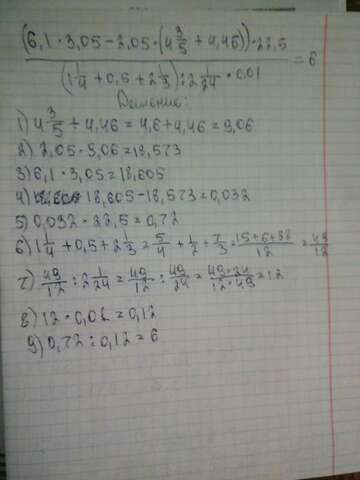 (6,1 · 3,05 - 2,05 · (4 3/5 + 4,46)) · 22,5
(1 1/4 + 0,5 + 2 1/3) : 2 1/24 · 0,01 = 6
Решение:
1) 4 3/5 + 4,46 = 4,6 + 4,46 = 9,06
2) 2,05 · 9,06 = 18,573
3) 6,1 · 3,05 = 18,605
4) 18,605 - 18,573 = 0,032
5) 0,032 · 22,5 = 0,72
6) 1 1/4 + 0,5 + 2 1/3 = 5/4 + 1/2 + 7/3 = 15+6+28/12 = 49/12
7) 49/12 : 2 1/24 = 49/12 : 49/24 = 49·24/12·49 = 12
8) 12 · 0,01 = 0,12
9) 0,72 : 0,12 = 6